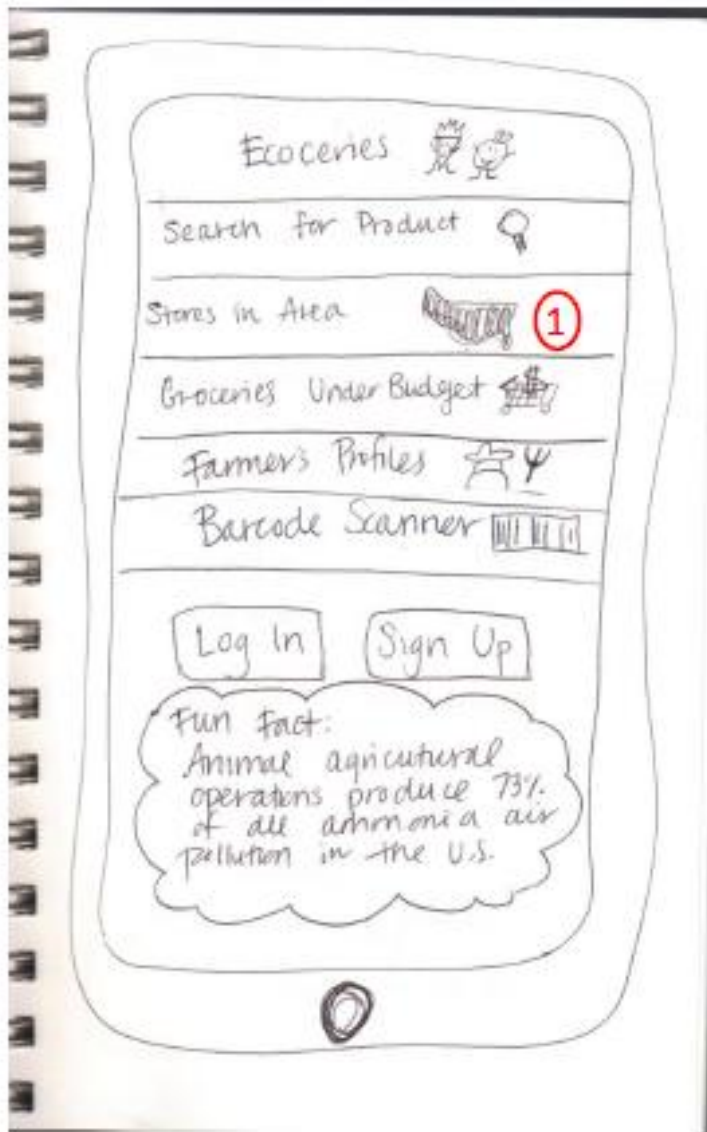 Ecoceries
Search for Product
Stores in Area 1
Groceries Under Budget
Farmer's Profiles
Barcode Scanner
Log In Sign Up
Fun Fact:
Animal agricutural
operations produce 73%
of all ammonia air
pollution in the U.S.